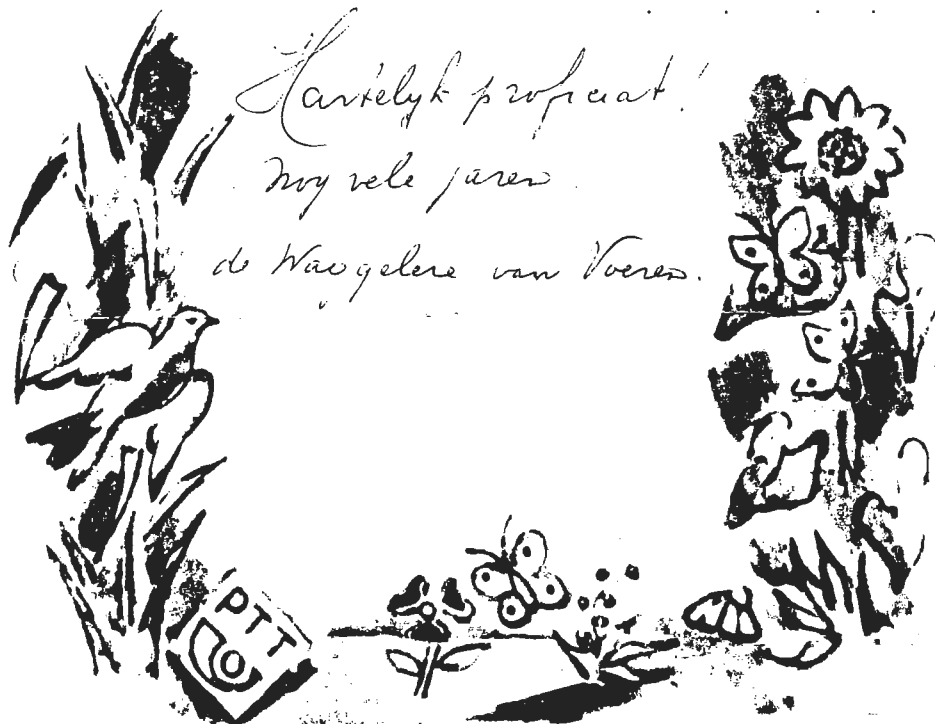 Hartelyk proficiat!
nog vele jaren
de Waogelere van Voeren.
PTT